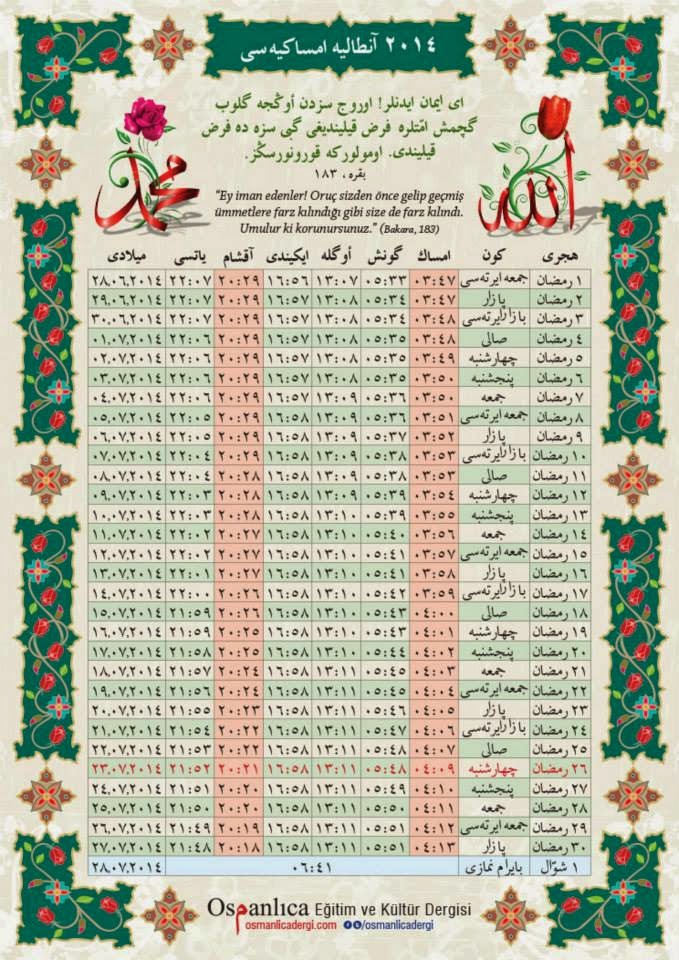 ٢٠١٤ آنطاليه امساكيه‌سى
اى ايمان ايدنلر! اوروج سزدن أوڭجه گلوب
گچمش امّتلره فرض قيلينديغى گبى سزه ده فرض
قيليندى. اومولوركه قورونورسڭز.
بقره ، ١٨٣
الله
محمد
“Ey iman edenler! Oruç sizden önce gelip geçmiş
ümmetlere farz kılındığı gibi size de farz kılındı.
Umulur ki korunursunuz.” (Bakara, 183)
هجرى كون امساك گونش أوگله ايكيندى آقشام ياتسى ميلادى
١ رمضان جمعه ايرته‌سى ٠٣:٤٧ ٠٥:٣٣ ١٣:٠٧ ١٦:٥٦ ٢٠:٢٩ ٢٢:٠٧ ٢٨.٠٦.٢٠١٤
٢ رمضان پازار ٠٣:٤٧ ٠٥:٣٤ ١٣:٠٨ ١٦:٥٧ ٢٠:٢٩ ٢٢:٠٧ ٢٩.٠٦.٢٠١٤
٣ رمضان بازارايرته‌سى ٠٣:٤٨ ٠٥:٣٤ ١٣:٠٨ ١٦:٥٧ ٢٠:٢٩ ٢٢:٠٧ ٣٠.٠٦.٢٠١٤
٤ رمضان صالى ٠٣:٤٨ ٠٥:٣٥ ١٣:٠٨ ١٦:٥٧ ٢٠:٢٩ ٢٢:٠٦ ٠١.٠٧.٢٠١٤
٥ رمضان چهارشنبه ٠٣:٤٩ ٠٥:٣٥ ١٣:٠٨ ١٦:٥٧ ٢٠:٢٩ ٢٢:٠٦ ٠٢.٠٧.٢٠١٤
٦ رمضان پنجشنبه ٠٣:٥٠ ٠٥:٣٥ ١٣:٠٨ ١٦:٥٧ ٢٠:٢٩ ٢٢:٠٦ ٠٣.٠٧.٢٠١٤
٧ رمضان جمعه ٠٣:٥٠ ٠٥:٣٦ ١٣:٠٩ ١٦:٥٧ ٢٠:٢٩ ٢٢:٠٦ ٠٤.٠٧.٢٠١٤
٨ رمضان جمعه ايرته‌سى ٠٣:٥١ ٠٥:٣٦ ١٣:٠٩ ١٦:٥٨ ٢٠:٢٩ ٢٢:٠٥ ٠٥.٠٧.٢٠١٤
٩ رمضان پازار ٠٣:٥٢ ٠٥:٣٧ ١٣:٠٩ ١٦:٥٨ ٢٠:٢٩ ٢٢:٠٥ ٠٦.٠٧.٢٠١٤
١٠ رمضان بازارايرته‌سى ٠٣:٥٣ ٠٥:٣٨ ١٣:٠٩ ١٦:٥٨ ٢٠:٢٩ ٢٢:٠٤ ٠٧.٠٧.٢٠١٤
١١ رمضان صالى ٠٣:٥٣ ٠٥:٣٨ ١٣:٠٩ ١٦:٥٨ ٢٠:٢٨ ٢٢:٠٤ ٠٨.٠٧.٢٠١٤
١٢ رمضان چهارشنبه ٠٣:٥٤ ٠٥:٣٩ ١٣:٠٩ ١٦:٥٨ ٢٠:٢٨ ٢٢:٠٣ ٠٩.٠٧.٢٠١٤
١٣ رمضان پنجشنبه ٠٣:٥٥ ٠٥:٣٩ ١٣:١٠ ١٦:٥٨ ٢٠:٢٨ ٢٢:٠٣ ١٠.٠٧.٢٠١٤
١٤ رمضان جمعه ٠٣:٥٦ ٠٥:٤٠ ١٣:١٠ ١٦:٥٨ ٢٠:٢٧ ٢٢:٠٢ ١١.٠٧.٢٠١٤
١٥ رمضان جمعه ايرته‌سى ٠٣:٥٧ ٠٥:٤١ ١٣:١٠ ١٦:٥٨ ٢٠:٢٧ ٢٢:٠٢ ١٢.٠٧.٢٠١٤
١٦ رمضان پازار ٠٣:٥٨ ٠٥:٤١ ١٣:١٠ ١٦:٥٨ ٢٠:٢٧ ٢٢:٠١ ١٣.٠٧.٢٠١٤
١٧ رمضان بازارايرته‌سى ٠٣:٥٩ ٠٥:٤٢ ١٣:١٠ ١٦:٥٨ ٢٠:٢٦ ٢٢:٠٠ ١٤.٠٧.٢٠١٤
١٨ رمضان صالى ٠٤:٠٠ ٠٥:٤٣ ١٣:١٠ ١٦:٥٨ ٢٠:٢٦ ٢١:٥٩ ١٥.٠٧.٢٠١٤
١٩ رمضان چهارشنبه ٠٤:٠١ ٠٥:٤٣ ١٣:١٠ ١٦:٥٨ ٢٠:٢٥ ٢١:٥٩ ١٦.٠٧.٢٠١٤
٢٠ رمضان پنجشنبه ٠٤:٠٢ ٠٥:٤٤ ١٣:١٠ ١٦:٥٨ ٢٠:٢٥ ٢١:٥٨ ١٧.٠٧.٢٠١٤
٢١ رمضان جمعه ٠٤:٠٣ ٠٥:٤٥ ١٣:١١ ١٦:٥٨ ٢٠:٢٤ ٢١:٥٧ ١٨.٠٧.٢٠١٤
٢٢ رمضان جمعه ايرته‌سى ٠٤:٠٤ ٠٥:٤٥ ١٣:١١ ١٦:٥٨ ٢٠:٢٤ ٢١:٥٦ ١٩.٠٧.٢٠١٤
٢٣ رمضان پازار ٠٤:٠٥ ٠٥:٤٦ ١٣:١١ ١٦:٥٨ ٢٠:٢٣ ٢١:٥٥ ٢٠.٠٧.٢٠١٤
٢٤ رمضان بازارايرته‌سى ٠٤:٠٦ ٠٥:٤٧ ١٣:١١ ١٦:٥٨ ٢٠:٢٢ ٢١:٥٤ ٢١.٠٧.٢٠١٤
٢٥ رمضان صالى ٠٤:٠٧ ٠٥:٤٨ ١٣:١١ ١٦:٥٨ ٢٠:٢٢ ٢١:٥٣ ٢٢.٠٧.٢٠١٤
٢٦ رمضان چهارشنبه ٠٤:٠٩ ٠٥:٤٨ ١٣:١١ ١٦:٥٨ ٢٠:٢١ ٢١:٥٢ ٢٣.٠٧.٢٠١٤
٢٧ رمضان پنجشنبه ٠٤:١٠ ٠٥:٤٩ ١٣:١١ ١٦:٥٨ ٢٠:٢٠ ٢١:٥١ ٢٤.٠٧.٢٠١٤
٢٨ رمضان جمعه ٠٤:١١ ٠٥:٥٠ ١٣:١١ ١٦:٥٨ ٢٠:٢٠ ٢١:٥٠ ٢٥.٠٧.٢٠١٤
٢٩ رمضان جمعه ايرته‌سى ٠٤:١٢ ٠٥:٥١ ١٣:١١ ١٦:٥٨ ٢٠:١٩ ٢١:٤٩ ٢٦.٠٧.٢٠١٤
٣٠ رمضان پازار ٠٤:١٣ ٠٥:٥١ ١٣:١١ ١٦:٥٨ ٢٠:١٨ ٢١:٤٨ ٢٧.٠٧.٢٠١٤
١ شوّال بايرام نمازى ٠٦:٤١ ٢٨.٠٧.٢٠١٤
Osmanlıca Eğitim ve Kültür Dergisi
osmanlicadergi.com /osmanlicadergi